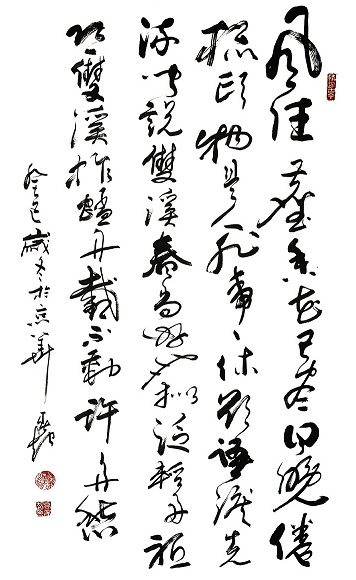 風住塵香花已盡日晚倦
梳頭物是人非事々休欲語淚先
流聞說雙溪春尚好也擬泛輕舟祗
恐雙溪舴艋舟載不動許多愁
癸巳歲冬於京華